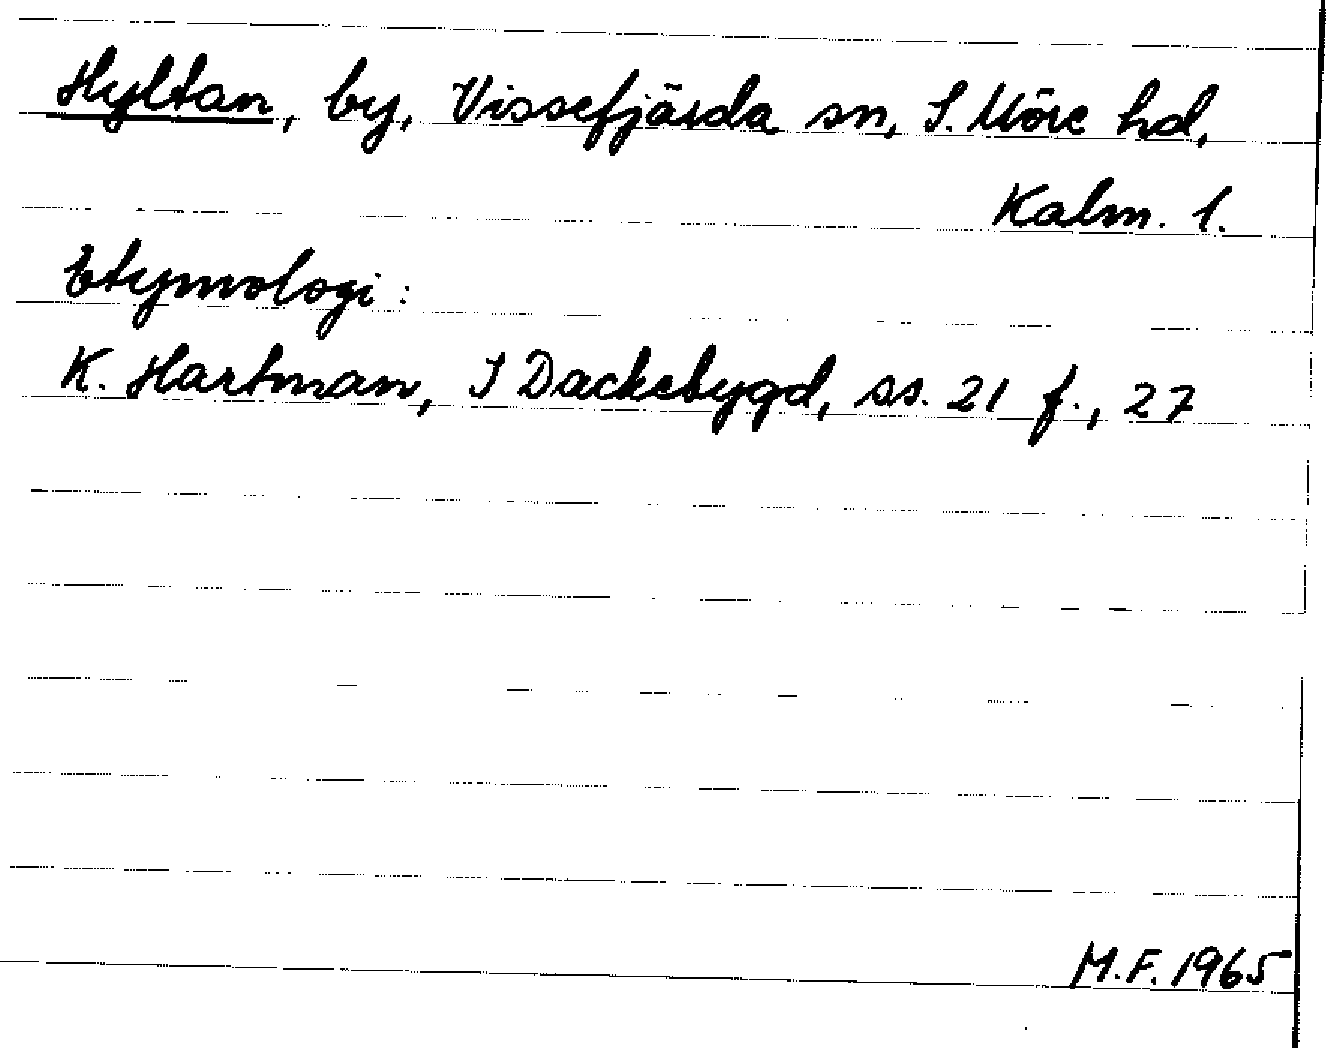 Hyltan, by, Vissefjärda sn, S. Möre hd,
Kalm. l.
Etymologi:
K. Hartman, I Dackebygd, ss. 21 f., 27
M.F. 1965